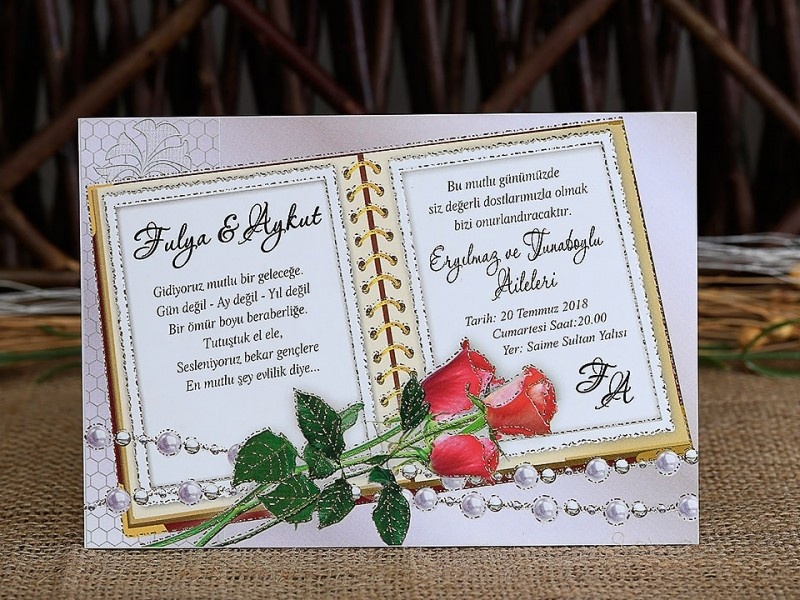 Fulya & Aykut
Gidiyoruz mutlu bir geleceğe.
Gün değil - Ay değil - Yıl değil
Bir ömür boyu beraberliğe.
Tutuştuk el ele,
Sesleniyoruz bekar gençlere
En mutlu şey evlilik diye...
Bu mutlu günümüzde
siz değerli dostlarımızla olmak
bizi onurlandıracaktır.
Ergılmaz ve Tunaboylu
Aileleri
Tarih: 20 Temmuz 2018
Cumartesi Saat:20.00
Yer: Saime Sultan Yalısı
F
A